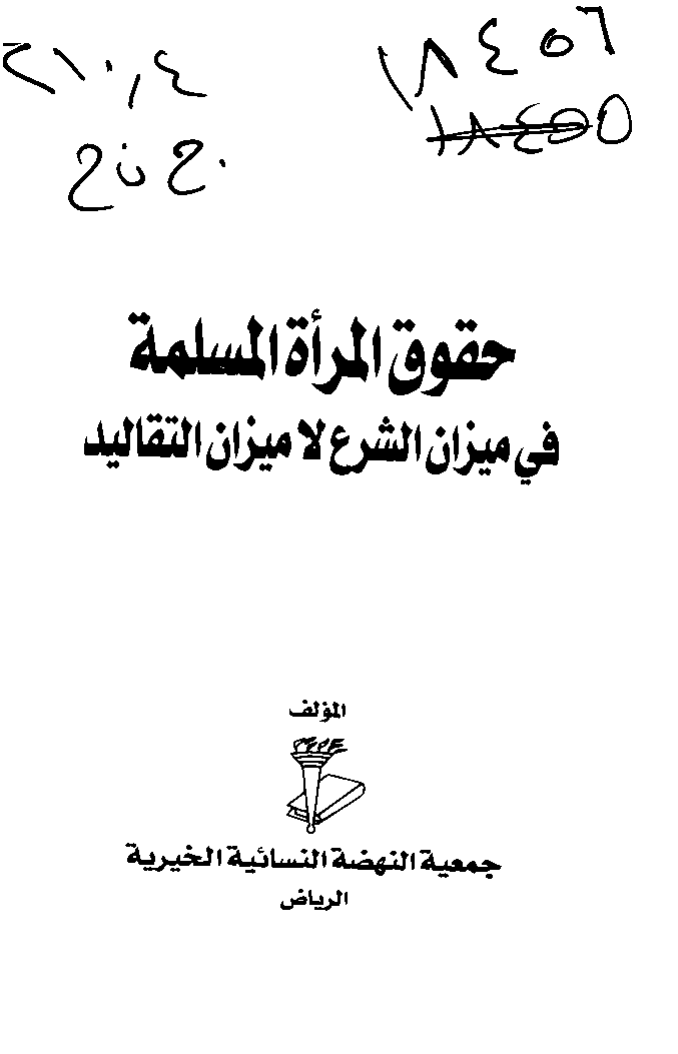 ١٨٤٥٦
١٨٤٥٥
٢١٠,٤
ح ن ج
حقوق المرأة المسلمة
في ميزان الشرع لا ميزان التقاليد
المؤلف
جمعية النهضة النسائية الخيرية
الرياض